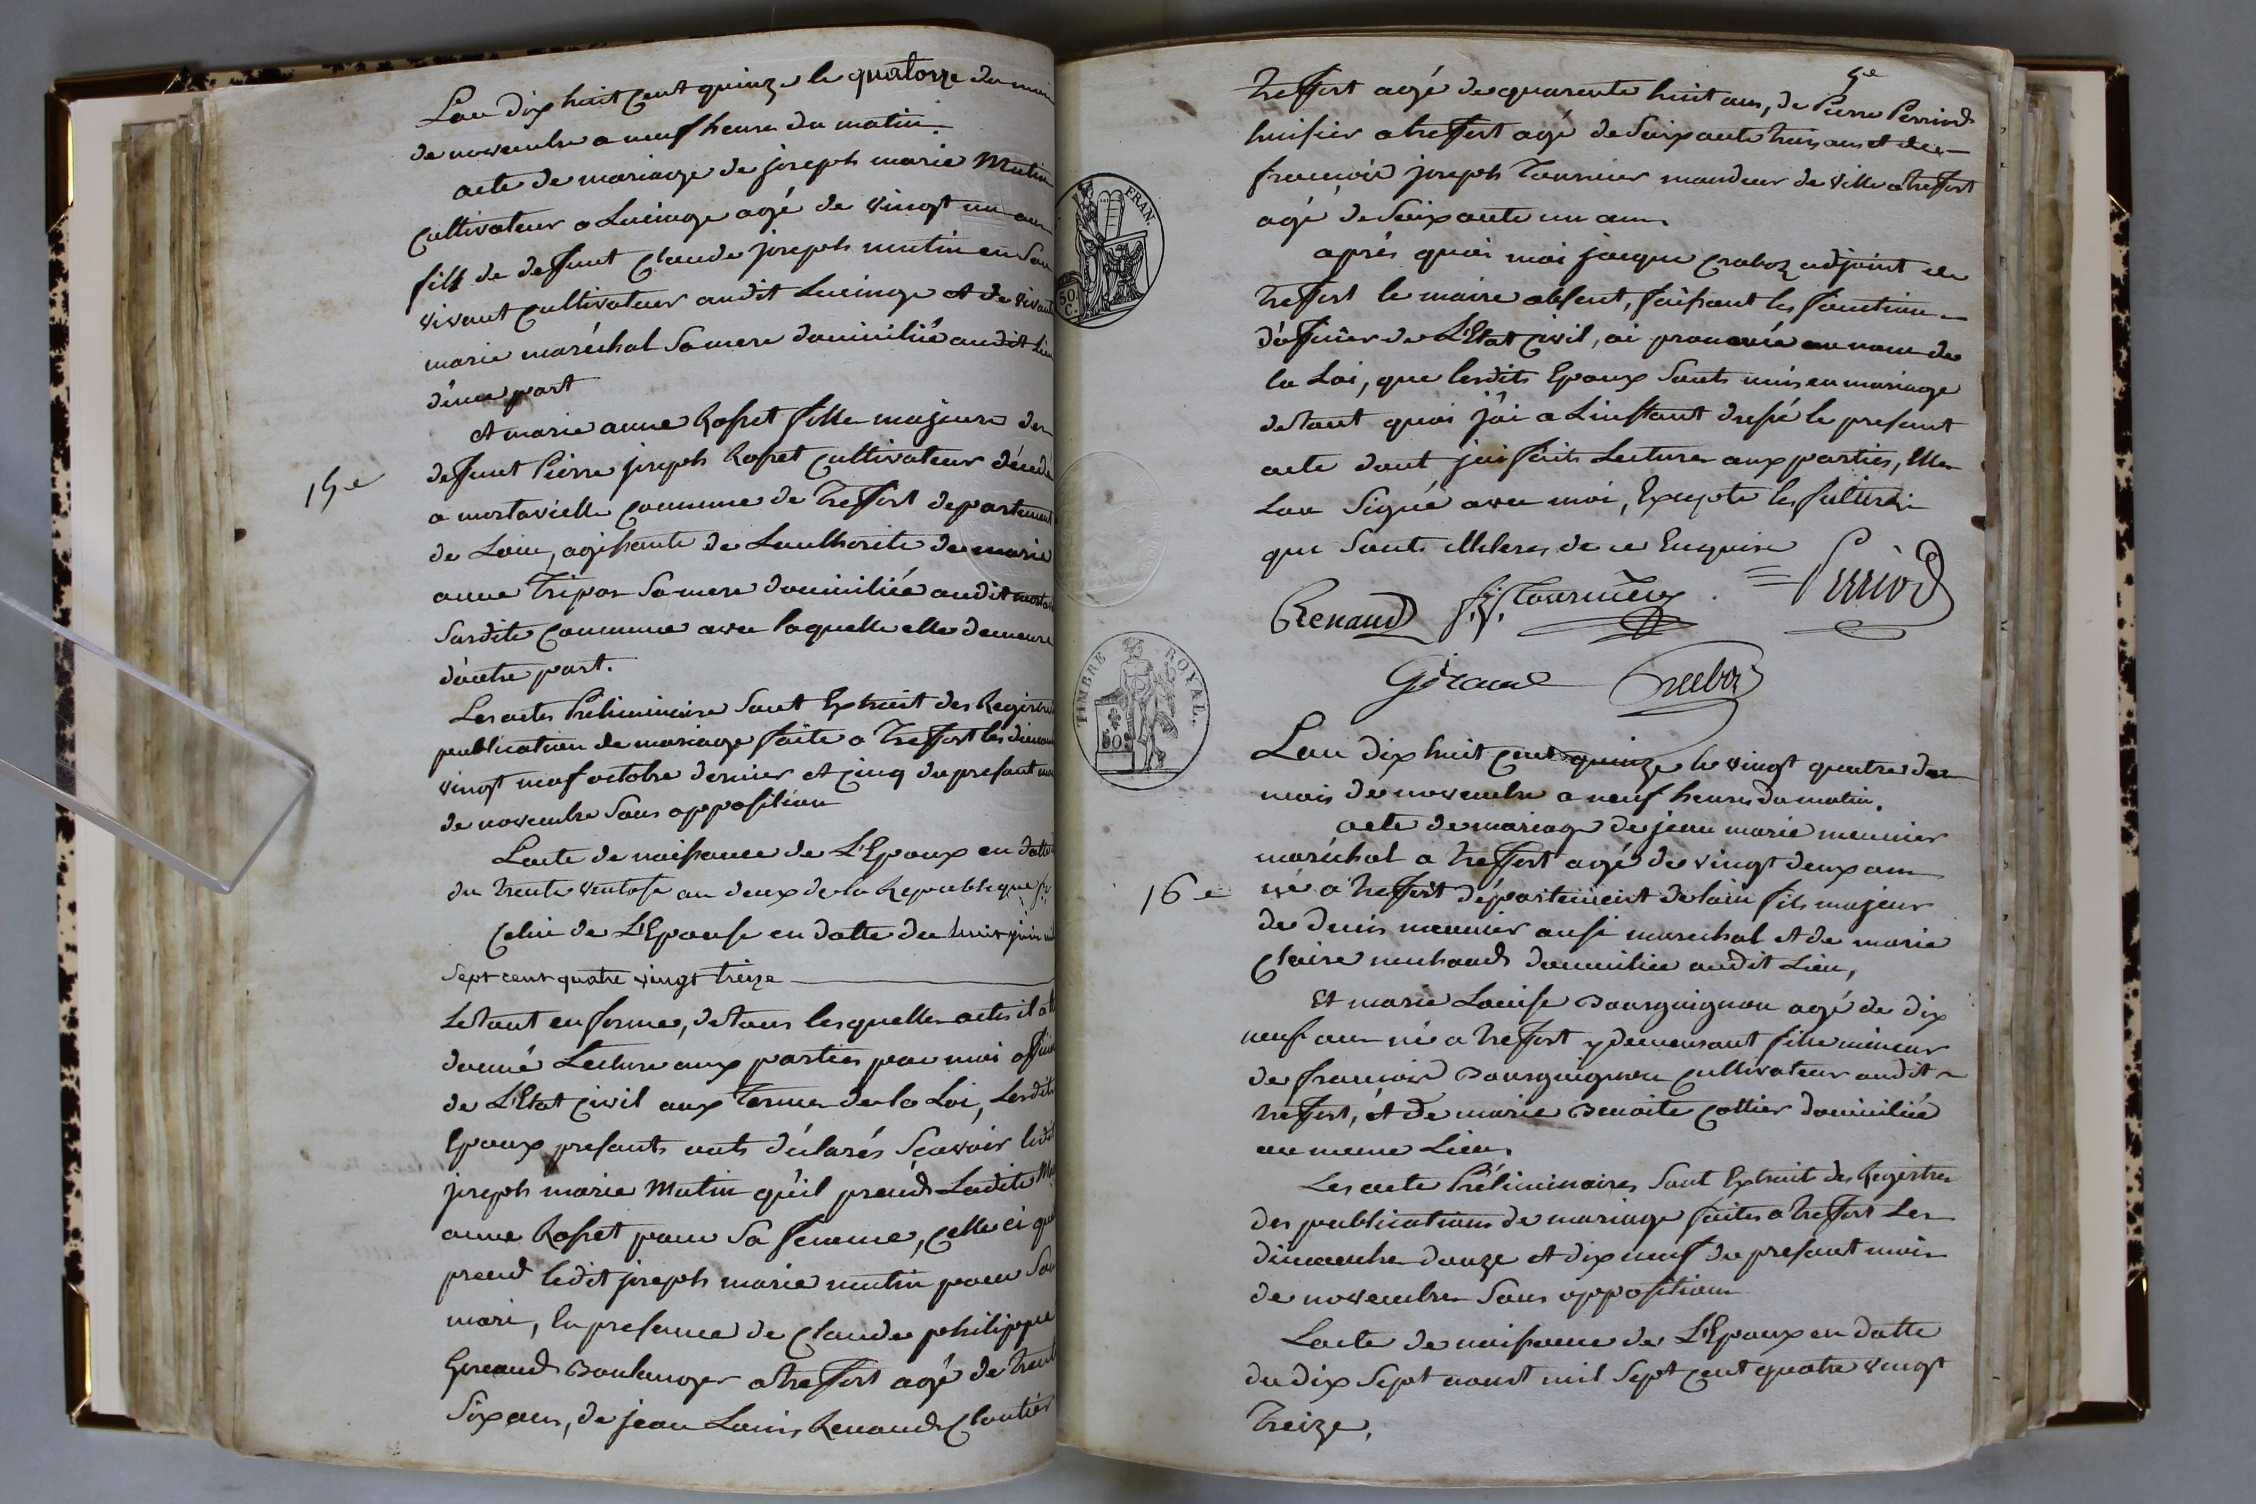 Lan dix huit cent quinze le quatorze du mois
de novembre a neuf heures du matin.
acte de mariage de joseph marie Mutin
cultivateur a Lucinge agé de vingt un ans
fils de deffunt Claude joseph mutin en Son
vivant cultivateur audit Lucinge et de vivante
marie maréchal Sa mere domiciliée audit Lieu
d'une part
et marie anne Rosset fille majeure de
15e
deffunt Pierre joseph Rosset cultivateur décédé
a montavielle commune de Treffort departement
de Lain, agissante de Lauthorité de marie
anne Tripoz Sa mere domiciliée audit
Susdite commune avec laquelle elle demeure
d'autre part.
Les actes Préliminaire Sont Extrait des Registres
publication de mariage faite a Treffort les dimanches
vingt neuf octobre dernier et cinq du present mois
de novembre Sans opposition
Lacte de naissance de L'Epoux en datte
du trente ventose an deux de la Republique
Celui de L'Epouse en datte du huit juin mil
Sept cent quatre vingt treize
Letout en forme, detous lesquelles actes il a été
donné Lecture aux parties par moi officier
de L'Etat Civil aux Termes de la Loi, Lesdits
Epoux presents onts déclarés Scavoir ledit
joseph marie Mutin qu'il prend Ladite
anne Rosset pour Sa femme, celle ci que
prend ledit joseph marie mutin pour Son
mari, En presence de Claude philippe
Geraud Boulanger a treffort agé de trente
Six ans, de jean Louis Renaud Cloutier
Treffort agé de quarente huit ans, de Pierre Perriod
huissier a treffort agé de Soixante trois ans et de
francois joseph Tournier mandeur de ville a treffort
agé de Soixante un ans.
après quoi moi jacque Craboz adjoint de
Treffort le maire absent, faissant les fonctions
d'officier de L'Etat Civil, ai prononcé au nom de
la Loi, que lesdits Epoux Sonts unis en mariage
detout quoi j'ai a Linstant dressé le present
acte dont jai faits Lecture aux parties, Elles
Lon Signé avec moi, Excepté les
qui Sonts de ce Enquise
Renaud f. j. Tournier Perriod
Géraud Craboz
Lan dix huit cent quinze le vingt quatre du
mois de novembre a neuf heures du matin.
acte de mariage de jean marie meunier
maréchal a treffort agé de vingt deux ans
16e
né a treffort département de lain fils majeur
de denis meunier aussi marechal et de marie
Claire domiciliée audit Lieu,
Et marie Louise Bourguignon agé de dix
neuf ans né a treffort y demeurant fille mineur
de francois Bourguignon cultivateur audit
treffort, et de marie Benoite Cottier domiciliée
au meme Lieu.
Les acte Préliminaires Sont Extraits des Registres
des publications de mariage faites a treffort Les
dimanche douze et dix neuf du present mois
de novembre Sans opposition
Lacte de naissance de L'Epoux en datte
du dix Sept aoust mil Sept cent quatre vingt
treize,
FRAN.
50.
C.
TIMBRE ROYAL.
50